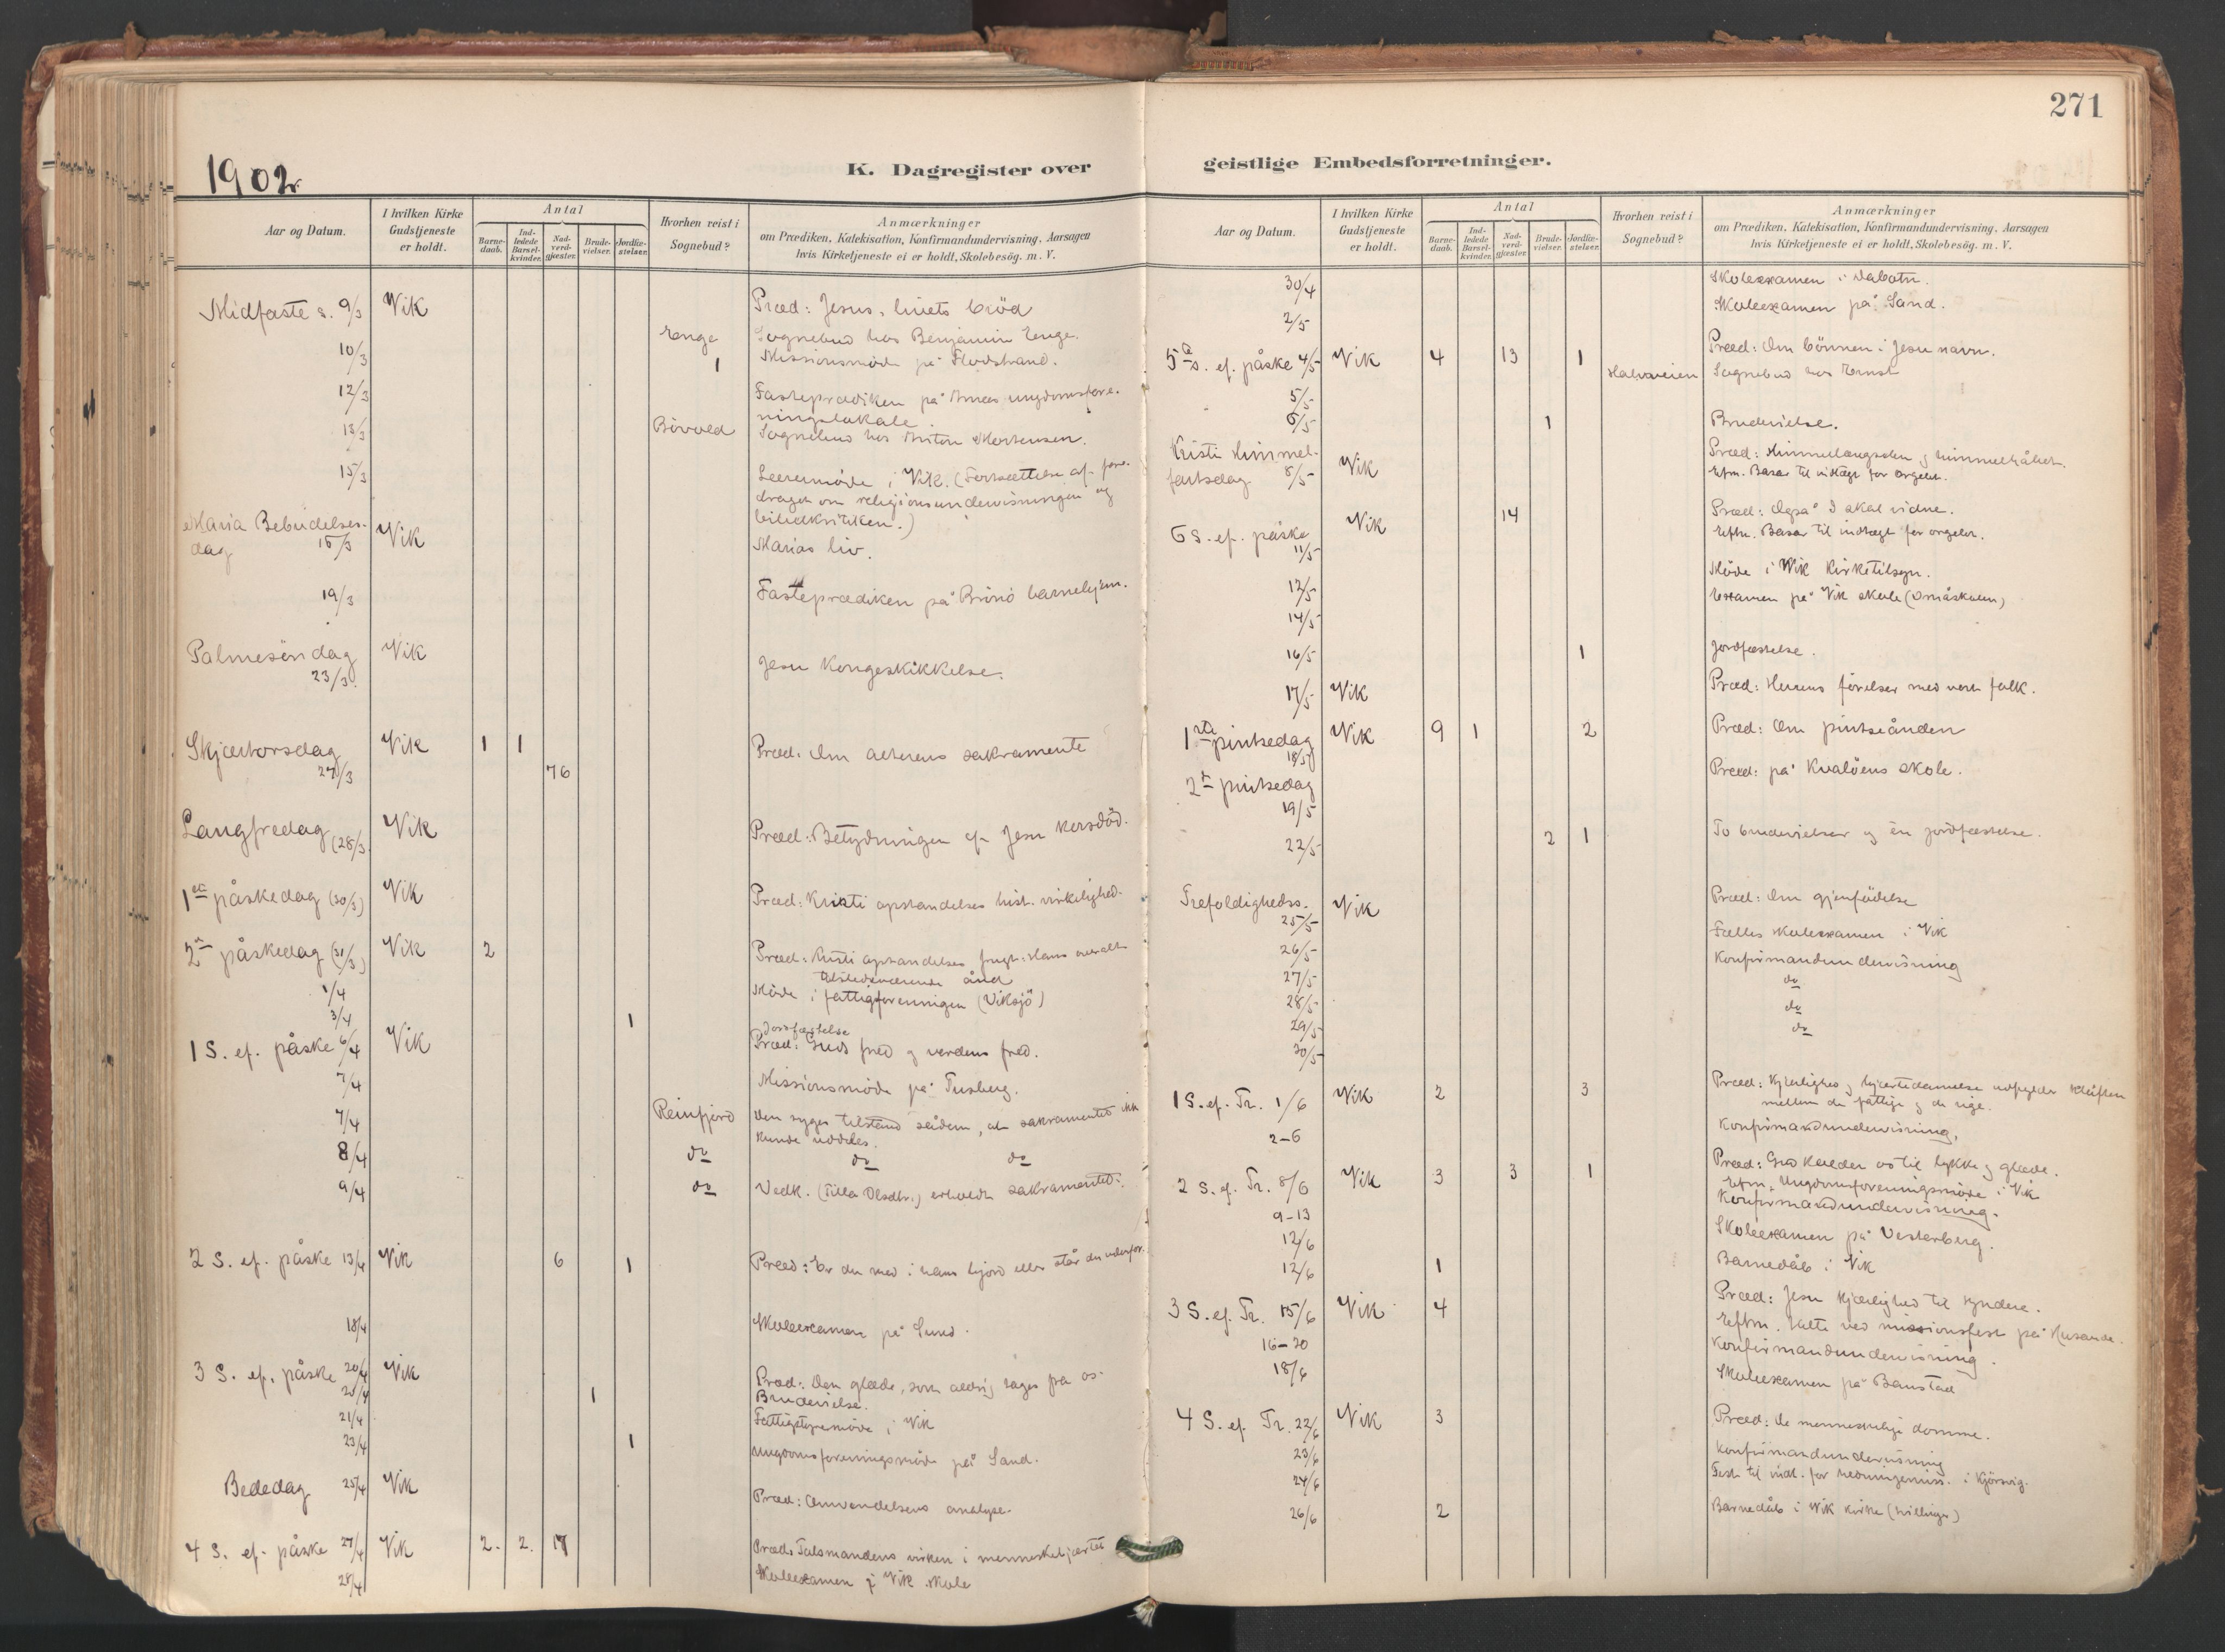 271
1902
K. Dagregister over
Aar og Datum.
I hvilken Kirke Gudstjeneste er holdt.
Antal
Barne-daab.
Ind-ledede Barsel-kvinder.
Nad-verd-gjæster.
Brude-vielser.
Jordfæ-stelser.
Hvorhen reist i Sognebud?
Anmærkninger
om Prædiken, Katekisation, Konfirmandundervisning, Aarsagen
hvis Kirketjeneste ei er holdt, Skolebesög. m. V.
Midfaste s. 9/3 Vik Præd: Jesus, livets bröd
10/3 Enge Sognebud hos Benjamin Enge.
1 Missionsmöde på Flodstrand.
12/3 Fasteprædiken på ungdomsfore-
ningslokale.
13/3 Bövold Sognebud hos Anton Mortensen.
15/3 Lærermöde i Vik. (Fortsættelse af fore-
draget om religionsundervisningen og
bibelkritikken.)
Maria Bebudelses-
dag 15/3 Vik Marias liv.
19/3 Fasteprædiken på Brönö barnehjem.
Palmesöndag Vik Jesu Kongeskikkelse.
23/3.
Skjærtorsdag Vik 1 1 Præd: Om alterens sakramente
27/3 76
Langfredag (28/3 Vik Præd: Betydningen af Jesu korsdöd.
1ste påskedag (30/3) Vik Præd: Kristi opstandelses hist. virkelighed.
2n påskedag (31/3) Vik 2 Præd: Kristi opstandelses frugt: Hans overalt
tilstedeværende ånd
1/4 Möde i fattigforeningen (Viksjö)
3/4 1 Jordfæstelse
1 S. ef. påske 6/4 Vik Præd: Guds fred og verdens fred.
7/4 Missionsmöde på Tusberg.
7/4 Reinfjord Den syges tilstand sådan, at sakramentet ikke
kunde uddeles.
8/4 do do do
9/4 do Vedk. (Tilla Olsdtr.) erholdt sakramentet.
2 S. ef. påske 13/4 Vik 6 1 Præd: Er du med i hans hjord eller står du udenfor.
18/4 Skoleexamen på Sund.
3 S. ef. påske 20/4 Vik Præd: Den glæde, som aldrig tages fra os.
20/4 1 Brudevielse.
21/4 Fattigstyremöde i Vik
23/4 1 Ungdomsforeningsmöde på Sand.
Bededag 25/4 Vik Præd: Omvendelsens analyse.
4 S. ef. påske 27/4 Vik 2. 2. 17 Præd: Talsmandens virken i menneskehjertet
28/4 Skoleexamen i Vik skole
geistlige Embedsforretninger.
Aar og Datum.
I hvilken Kirke Gudstjeneste er holdt.
Antal
Barne-daab.
Ind-ledede Barsel-kvinder.
Nad-verd-gjæster.
Brude-vielser.
Jordfæ-stelser.
Hvorhen reist i Sognebud?
Anmærkninger
om Prædiken, Katekisation, Konfirmandundervisning, Aarsagen
hvis Kirketjeneste ei er holdt, Skolebesög. m. V.
30/4 Skoleexamen i
2/5 Skoleexamen på Sand.
5te s. ef. påske 4/5 Vik 4 13 1 Præd: Om bönnen i Jesu navn.
5/5 Halvveien Sognebud hos Ernst
6/5 1 Brudevielse.
Kristi Himmel-
fartsdag 8/5 Vik Præd: Himmellængselen og himmelhåbet.
Eftm. Basar til indtægt for orgelet.
6 S. ef. påske 11/5 Vik 14 Præd: Også I skal vidne.
Eftm. Basar til indtægt for orgelet.
12/5 Möde i Vik kirketilsyn.
14/5 Examen på Vik skole (småskolen)
16/5 1 Jordfæstelse.
17/5 Vik Præd: Herrens förelser med vort folk.
1ste pintsedag 18/5 Vik 9 1 2 Præd: Om pintseånden
2n pintsedag 19/5 Præd: på Kvalöens skole.
22/5 2 1 To brudevielser og én jordfæstelse.
Trefoldighedss. 25/5 Vik Præd: Om gjenfödelse
26/5 Fælles skoleexamen i Vik
27/5 Konfirmandundervisning
28/5 do
29/5 do
30/5 do
1 S. ef. Tr. 1/6 Vik 2 3 Præd: Kjærlighed og hjertedannelse udfylder klöften
mellem de fattige og de rige.
2-6 Konfirmandundervisning.
2 S. ef. Tr. 8/6 Vik 3 3 1 Præd: Gud kalder os til lykke og glæde.
Eftm. Ungdomsforeningsmöde i Vik
9-13 Konfirmandundervisning.
12/6 Skoleexamen på Vesterberg.
12/6 1 Barnedåb i Vik
3 S. ef. Tr. 15/6 Vik 4 Præd: Jesu kjærlighed til syndere.
Eftm. talte ved missionsfest på Husande.
16-20 Konfirmandundervisning.
18/6 Skoleexamen på Baustad
4 S. ef. Tr. 22/6 Vik 3 Præd: De menneskelige domme.
23/6 Konfirmandundervisning
24/6 Fest til indt. for hedningemiss. i Kjörsvig.
26/6 2 Barnedåb i Vik kirke (tvillinger)